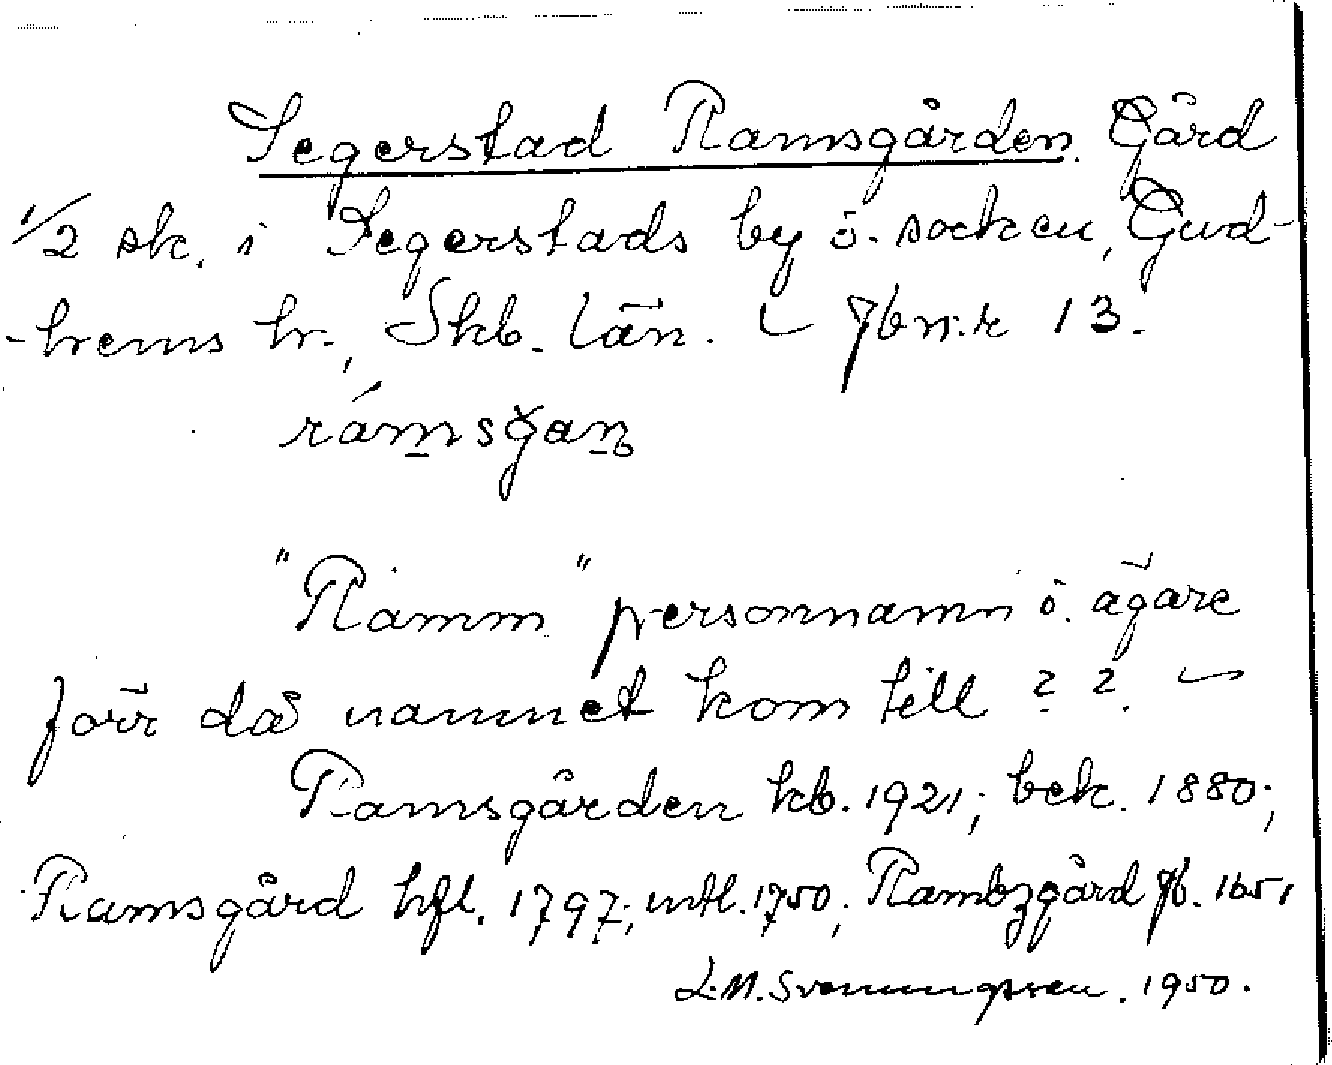 Segerstad Ramsgården. Gård
1/2 sk. i Segerstads by o. socken, Gud-
-hems hr., Skb. län. Jb n:r 13.
rámsgan
"Ramm" personnamn o. ägare
förr då namnet kom till ? ?. —
Ramsgården kb. 1921; bek. 1880;
Ramsgård hfl. 1797; mtl. 1750; Rambzgård Jb. 1651
L.M. Svenungsson. 1950.